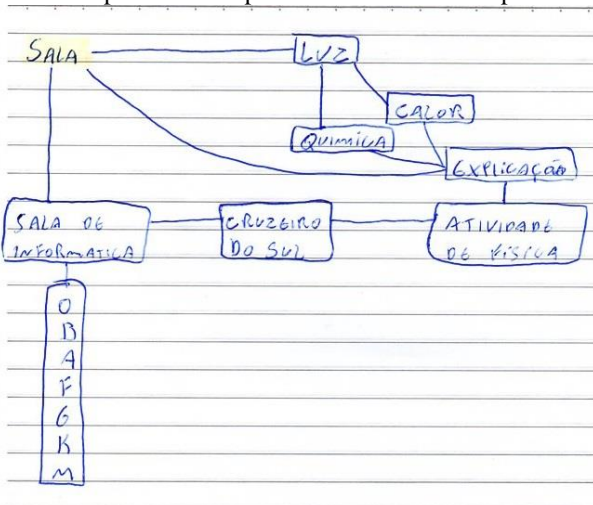 SALA
LUZ
CALOR
QUIMICA
EXPLICAÇÃO
SALA DE
INFORMATICA
CRUZEIRO
DO SUL
ATIVIDADE
DE FISICA
O
B
A
F
G
K
M